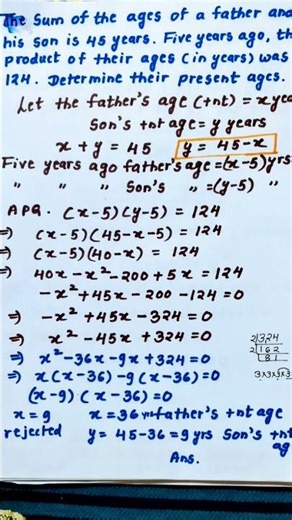 The Sum of the ages of a father and
his son is 45 years. Five years ago, th
product of their ages (in years) was
124. Determine their present ages.
Let the father's age (+nt) = x yea
Son's +nt age = y years
x + y = 45 y = 45-x
Five years ago father's age = (x-5) yrs
" " " Son's " = (y-5) "
A P Q. (x-5) (y-5) = 124
⇒) (x-5) (45-x-5) = 124
⇒ (x-5) (40-x) = 124
⇒ 40x - x² - 200 + 5x = 124
-x² + 45x - 200 - 124 = 0
⇒ -x² + 45x - 324 = 0
⇒ x² - 45x + 324 = 0
⇒ x² - 36x - 9x + 324 = 0
⇒ x(x-36) - 9(x-36) = 0
(x-9) (x-36) = 0
x = 9 x = 36 yrs father's +nt age
rejected y = 45-36 = 9 yrs Son's +nt
ag
Ans.
2|324
2|162
|81